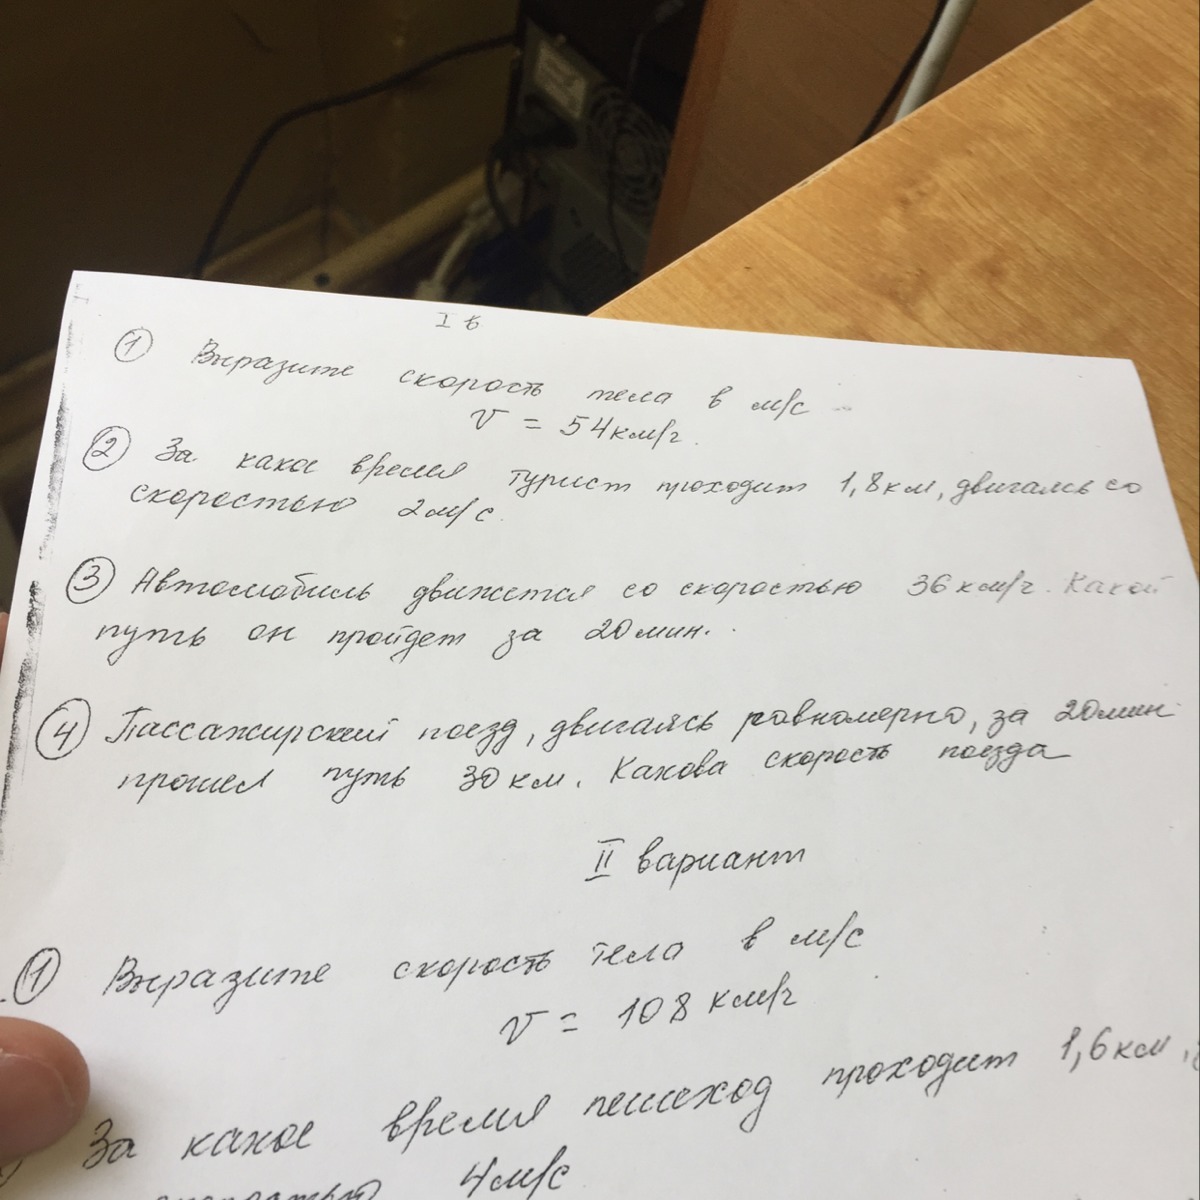 I в
① Выразите скорость тела в м/с
v = 54км/ч.
② За какое время турист проходит 1,8км, двигаясь со
скоростью 2м/с.
③ Автомобиль движется со скоростью 36км/ч. Какой
путь он пройдет за 20мин.
④ Пассажирский поезд, двигаясь равномерно, за 20мин
прошел путь 30км. Какова скорость поезда
II вариант
① Выразите скорость тела в м/с
v = 108км/ч
За какое время пешеход проходит 1,6км,
скоростью 4м/с